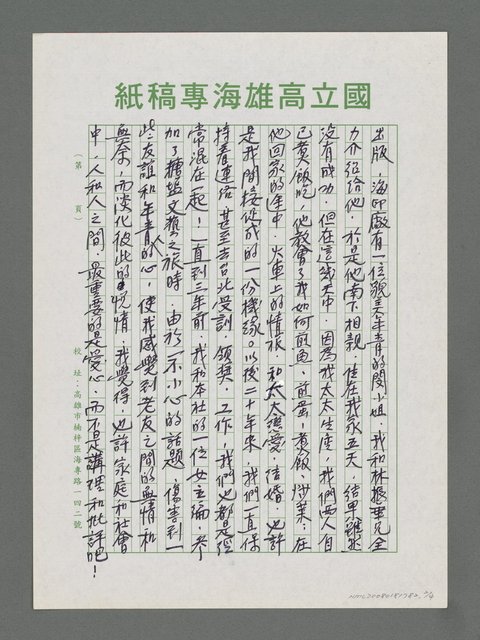 國立高雄海專稿紙
出版，海印廠有一位貌美年青的閔小姐，我和林振
介紹給他，於是他南下相親，住在我家五天，結果雖然
沒有成功，但在這幾天中，因為我太太生產，我們兩人自
己煮飯吃，他教會了我如何煎魚、煎蛋、煮飯、炒菜。在
他回家的途中，火車上的情旅，和太太戀愛、結婚，也許
是我間接促成的一份機緣。以後二十年來，我們一直保
持着連絡，甚至去台北受訓、領獎、工作，我們也都是經
常混在一起！一直到三年前，我和本社的一位女主編，參
加了鹽文藝之旅時，由於一不小心的話題，傷害到一
些友誼和年青人的心，使我感覺到老友之間的無情和
無奈，而淡化彼此的情。我覺得，也許家庭和社會
中，人和人之間，最重要的是愛心，而不是講理和批評吧！
（第　頁）
校址：高雄市楠梓區海專路一四二號
NMTL20080181782 2/4